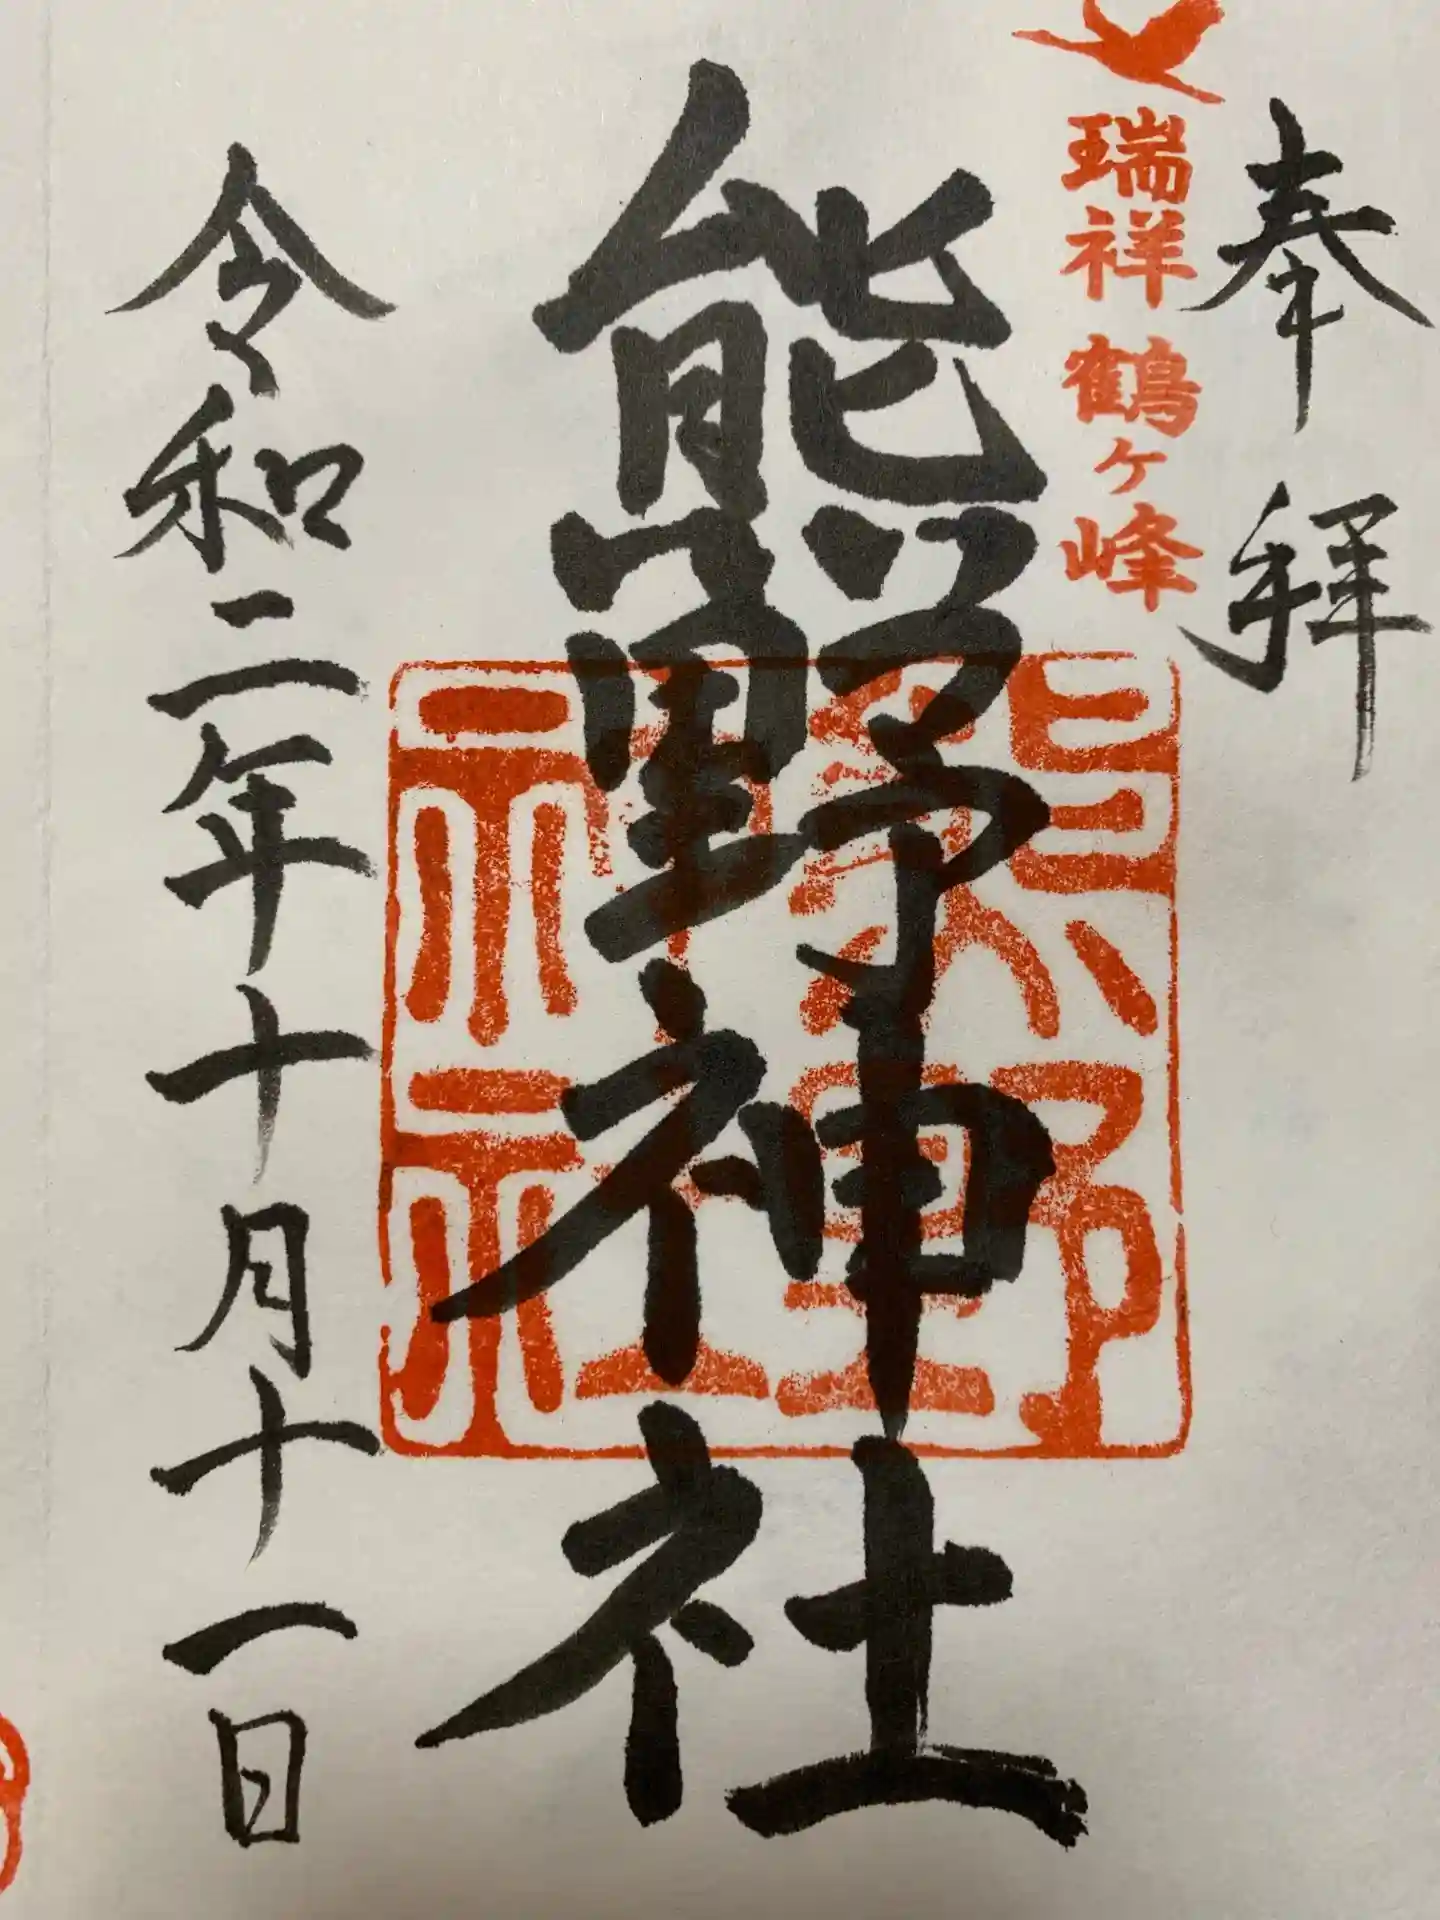 奉拝
瑞祥 鶴ヶ峰
熊野神社
熊野
神社
令和二年十月十一日